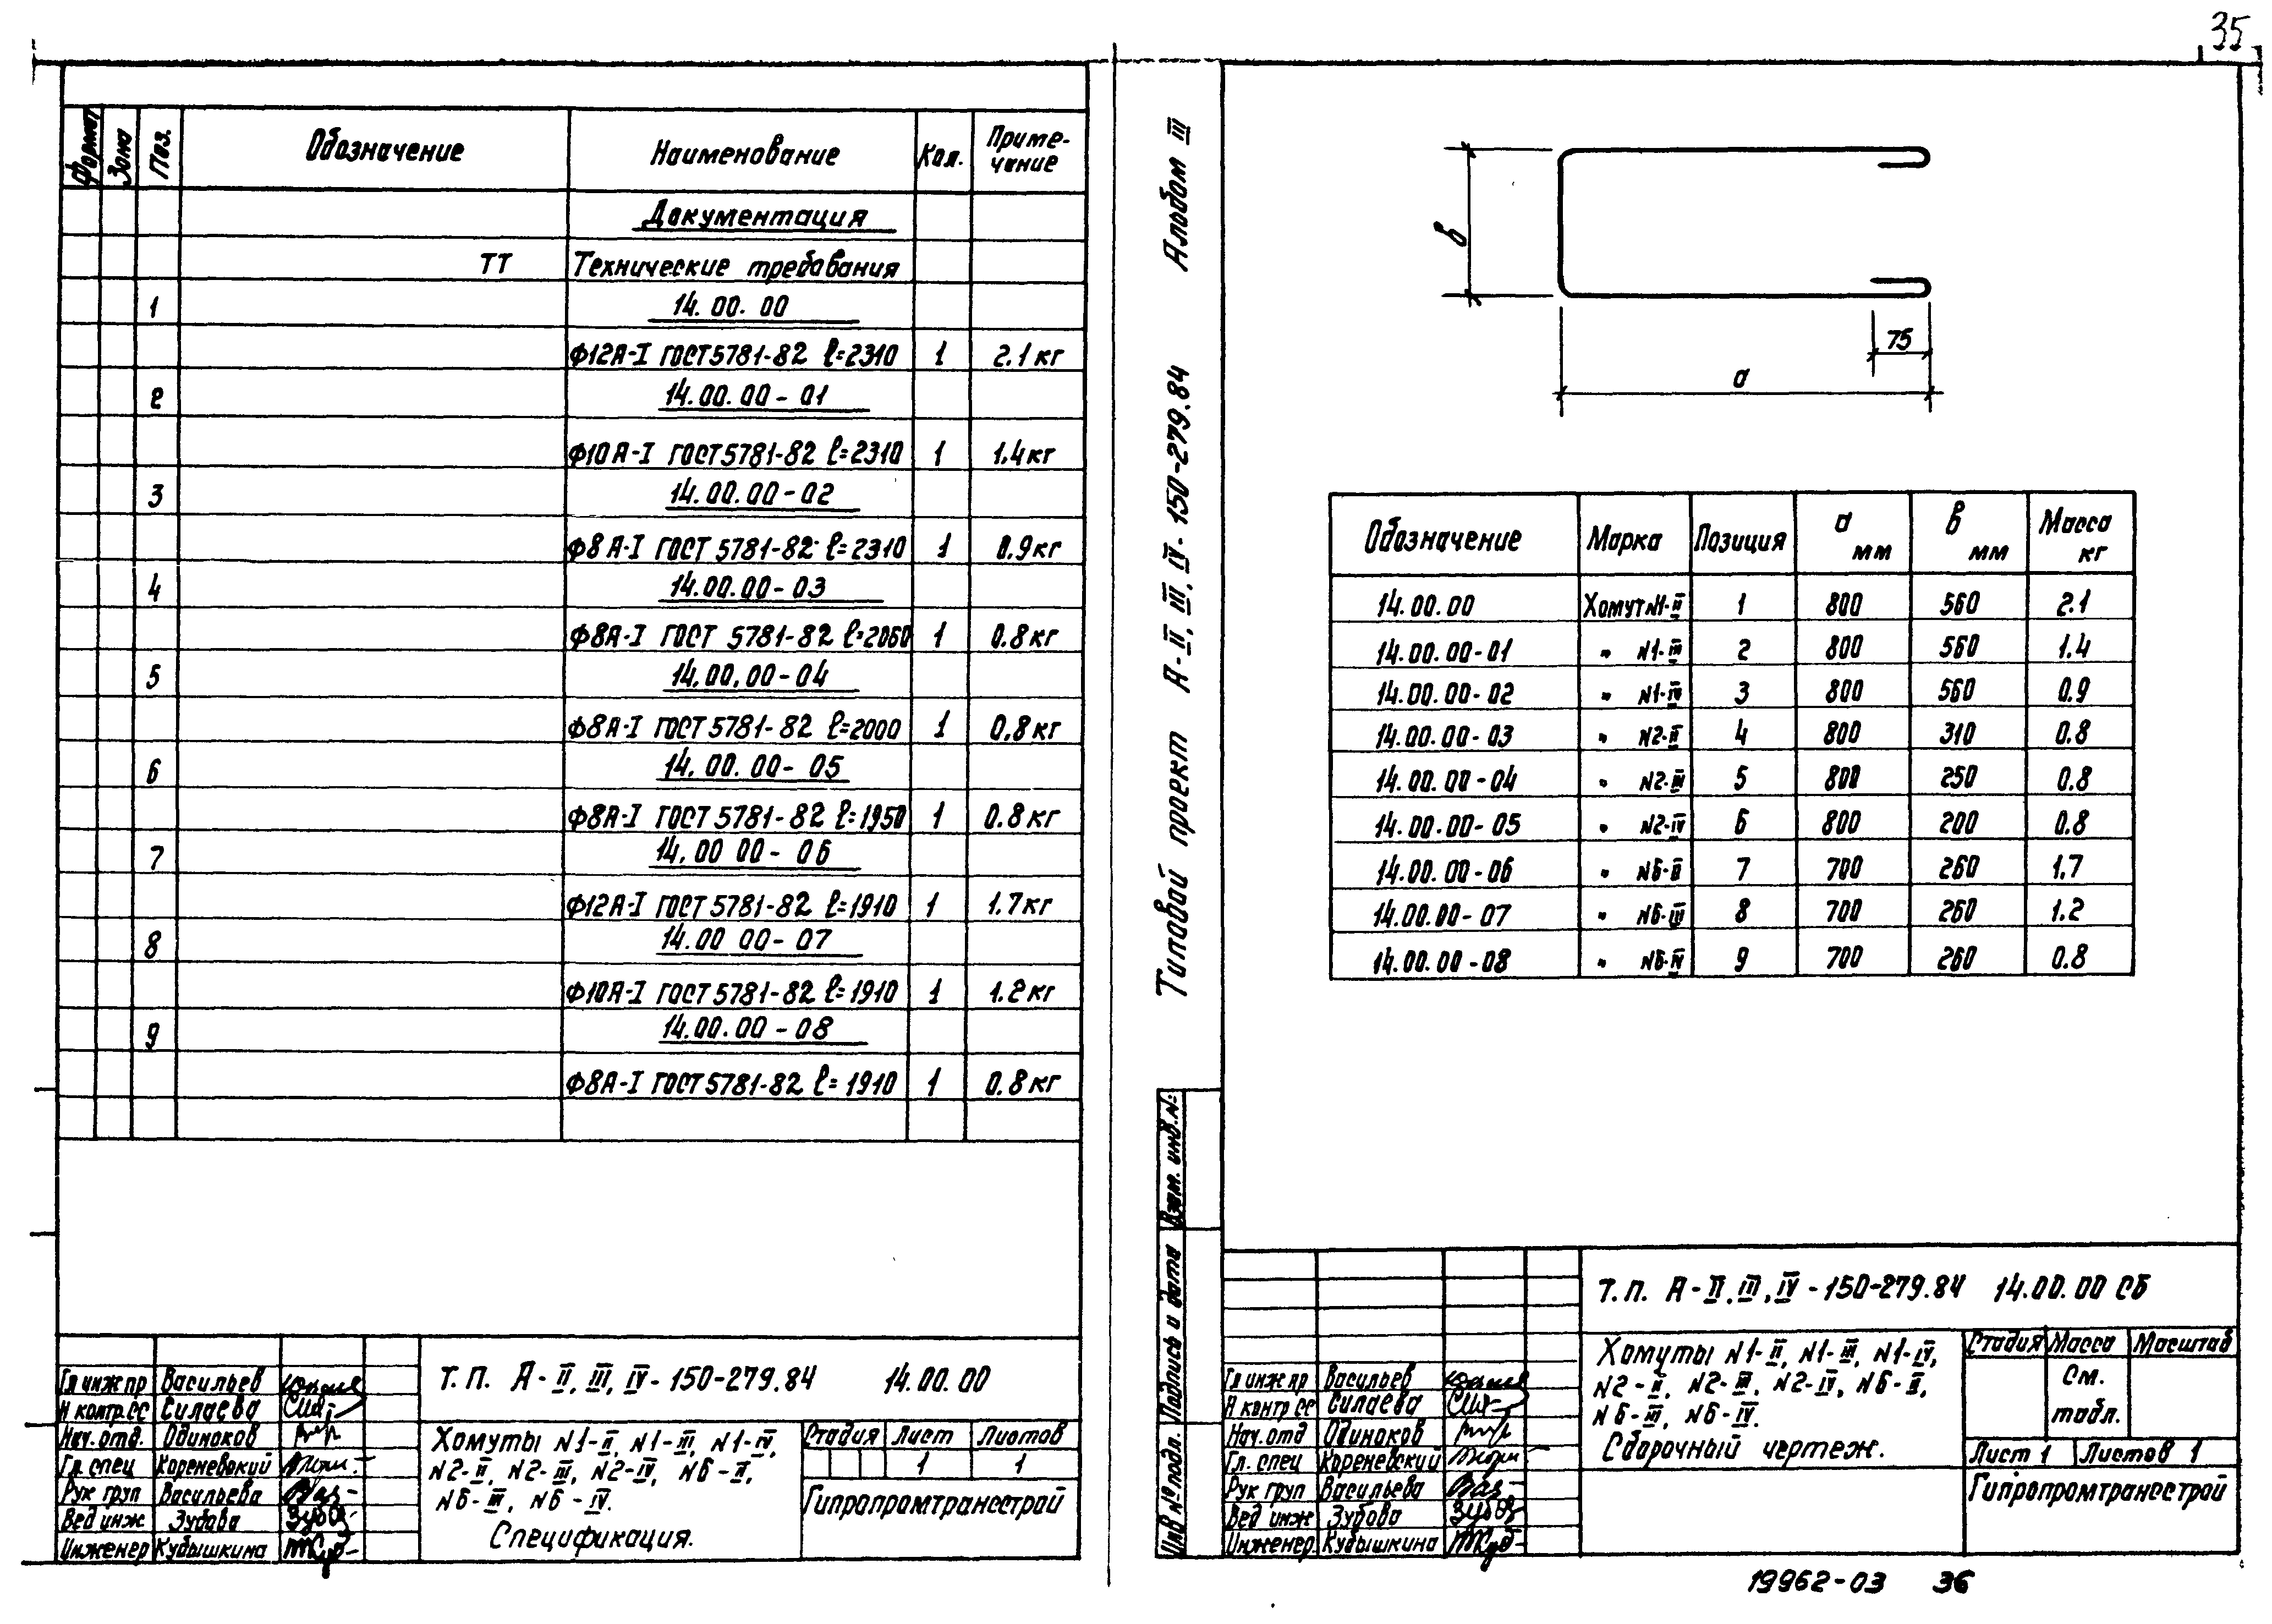 35
Формат Зона Поз. Обозначение Наименование Кол. Приме-
чание
Документация
ТТ Технические требования
1 14.00.00
Ф12А-I ГОСТ 5781-82 ℓ=2310 1 2.1 кг
2 14.00.00-01
Ф10А-I ГОСТ 5781-82 ℓ=2310 1 1.4 кг
3 14.00.00-02
Ф8А-I ГОСТ 5781-82 ℓ=2310 1 0.9 кг
4 14.00.00-03
Ф8А-I ГОСТ 5781-82 ℓ=2060 1 0.8 кг
5 14.00.00-04
Ф8А-I ГОСТ 5781-82 ℓ=2000 1 0.8 кг
6 14.00.00-05
Ф8А-I ГОСТ 5781-82 ℓ=1950 1 0.8 кг
7 14.00 00-06
Ф12А-I ГОСТ 5781-82 ℓ=1910 1 1.7 кг
8 14.00 00-07
Ф10А-I ГОСТ 5781-82 ℓ=1910 1 1.2 кг
9 14.00.00-08
Ф8А-I ГОСТ 5781-82 ℓ=1910 1 0.8 кг
Гл инж пр Васильев
Н контр.СС Силаева
Нач. отд. Одиноков
Гл. спец Кореневский
Рук груп Васильева
Вед инж Зубова
Инженер Кубышкина
Т.П. А-II, III, IV-150-279.84 14.00.00
Хомуты N1-II, N1-III, N1-IV,
N2-II, N2-III, N2-IV, N6-II,
N6-III, N6-IV.
Спецификация.
Стадия Лист Листов
1 1
Гипропромтрансстрой
Типовой проект А-II, III, IV-150-279.84 Альбом III
Взам. инв.№
Подпись и дата
Инв № подл.
в
а
75
Обозначение Марка Позиция а мм в мм Масса кг
14.00.00 Хомут N1-II 1 800 560 2.1
14.00.00-01 " N1-III 2 800 560 1.4
14.00.00-02 " N1-IV 3 800 560 0.9
14.00.00-03 " N2-II 4 800 310 0.8
14.00.00-04 " N2-III 5 800 250 0.8
14.00.00-05 " N2-IV 6 800 200 0.8
14.00.00-06 " N6-II 7 700 260 1.7
14.00.00-07 " N6-III 8 700 260 1.2
14.00.00-08 " N6-IV 9 700 260 0.8
Гл инж пр Васильев
Н контр СС Силаева
Нач. отд Одиноков
Гл. спец Кореневский
Рук груп Васильева
Вед инж Зубова
Инженер Кубышкина
Т.П. А-II, III, IV-150-279.84 14.00.00 СБ
Хомуты N1-II, N1-III, N1-IV,
N2-II, N2-III, N2-IV, N6-II,
N6-III, N6-IV.
Сборочный чертеж.
Стадия Масса Масштаб
См.
табл.
Лист 1 Листов 1
Гипропромтрансстрой
19962-03 36